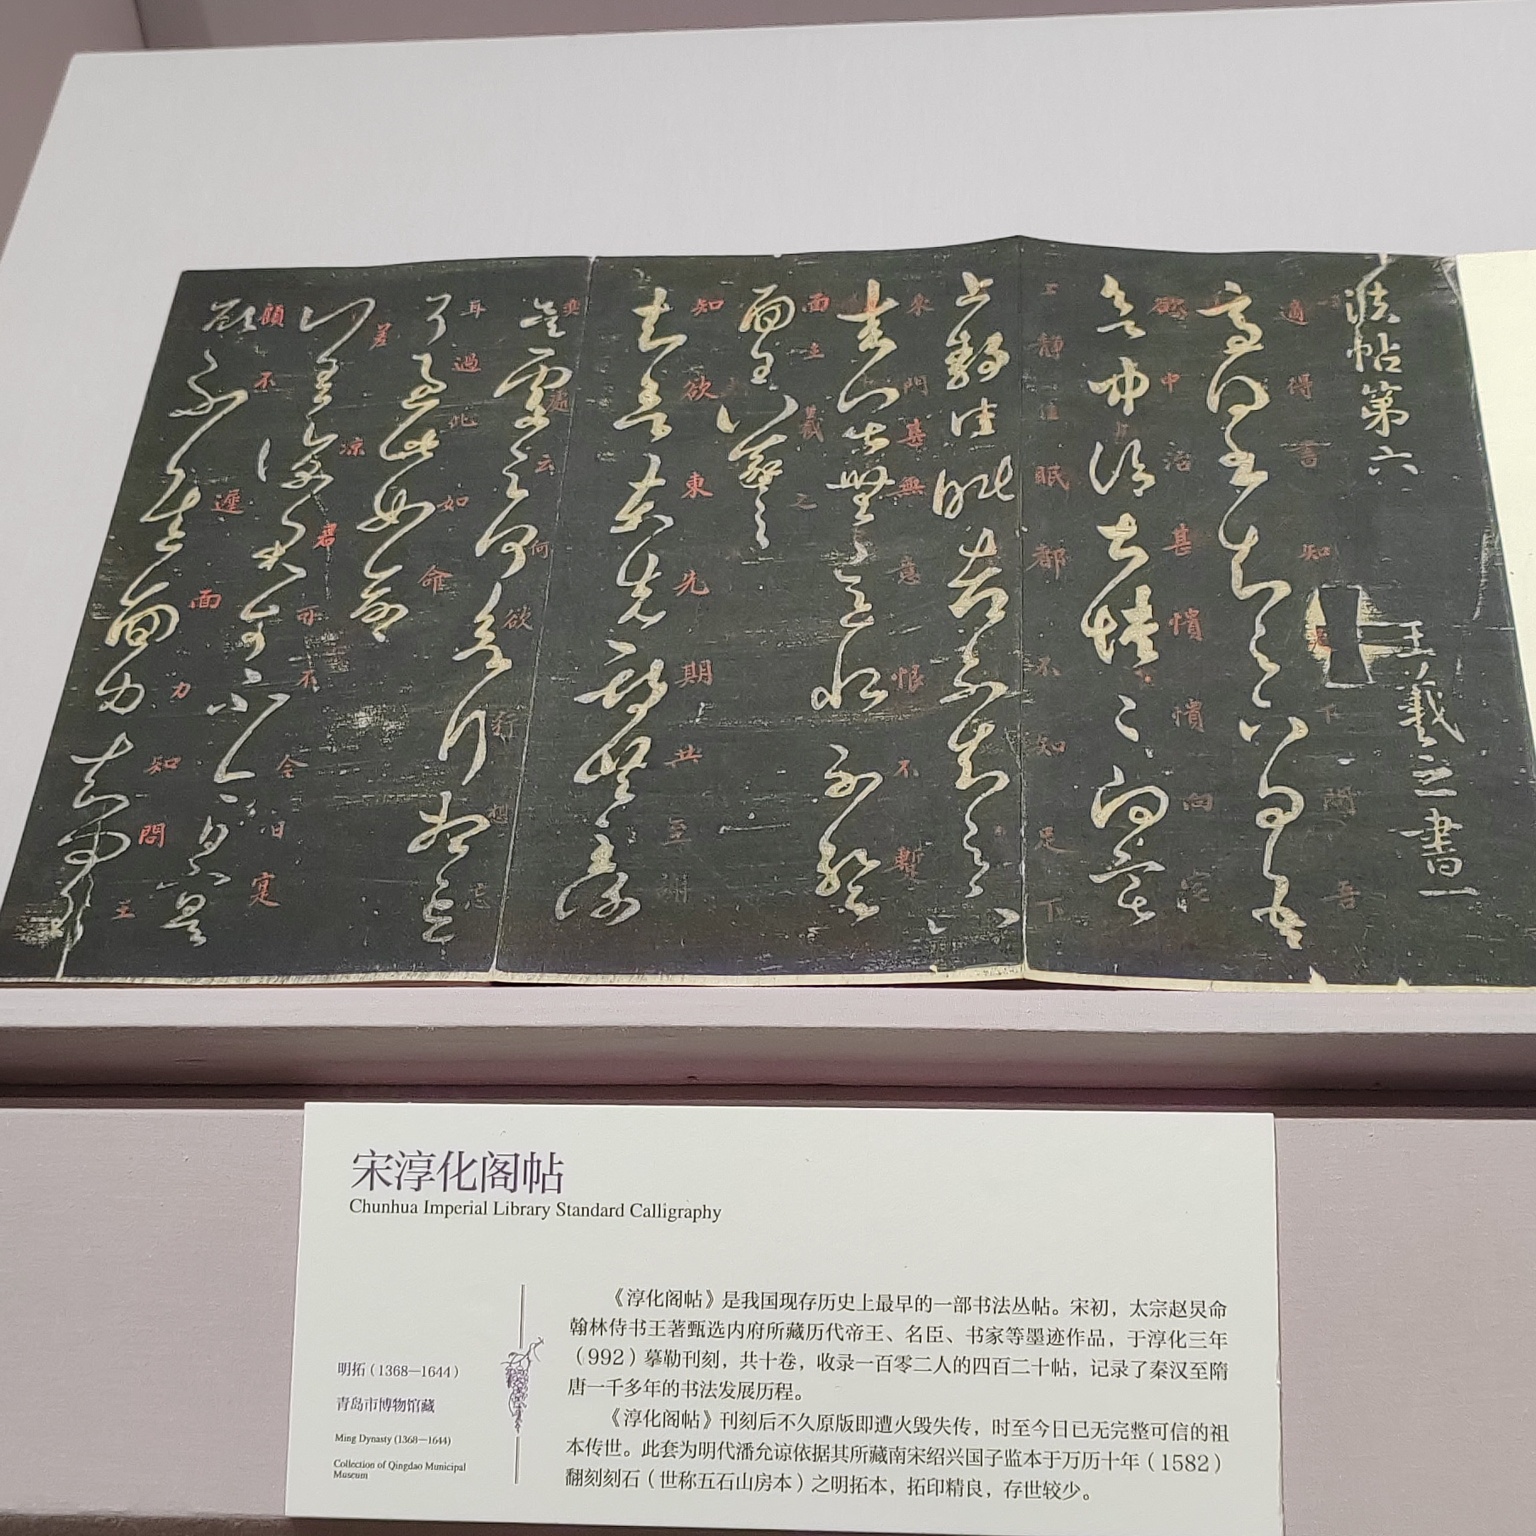 法帖第六 王羲之書一
適得書知足下問吾
欲中冷甚憒憒向宅
上靜佳眠都不知足下
來門甚無意恨不暫
面王羲之
知欲東先期共至謝
奕處云何欲行想忘
耳過此如命
差涼君可不今日寔
顧不遲面力知問王
宋淳化阁帖
Chunhua Imperial Library Standard Calligraphy
明拓（1368—1644）
青岛市博物馆藏
Ming Dynasty (1368—1644)
Collection of Qingdao Municipal
Museum
《淳化阁帖》是我国现存历史上最早的一部书法丛帖。宋初，太宗赵炅命
翰林侍书王著甄选内府所藏历代帝王、名臣、书家等墨迹作品，于淳化三年
（992）摹勒刊刻，共十卷，收录一百零二人的四百二十帖，记录了秦汉至隋
唐一千多年的书法发展历程。
《淳化阁帖》刊刻后不久原版即遭火毁失传，时至今日已无完整可信的祖
本传世。此套为明代潘允谅依据其所藏南宋绍兴国子监本于万历十年（1582）
翻刻刻石（世称五石山房本）之明拓本，拓印精良，存世较少。